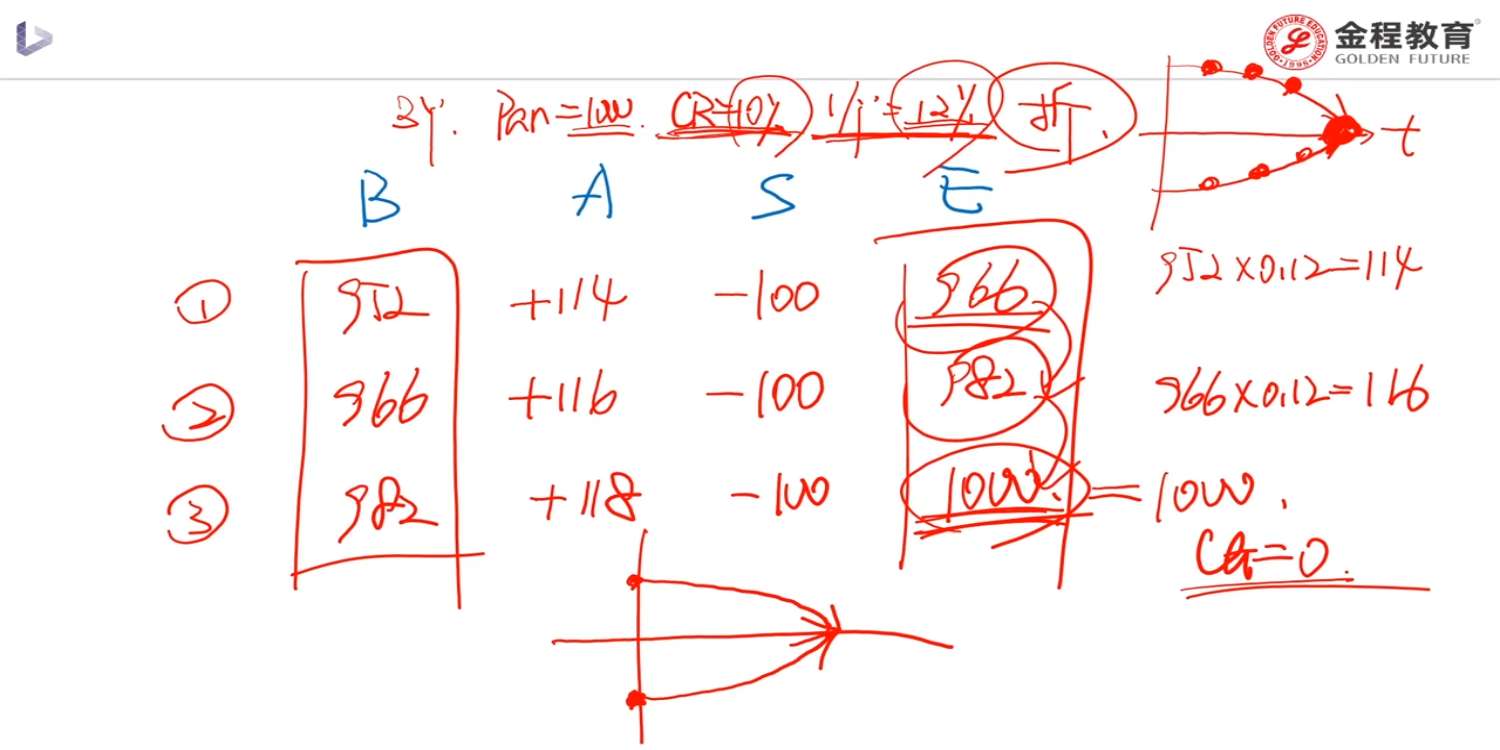 金程教育
GOLDEN FUTURE
3y. Par=1000. CR=10% I/Y=12% 折.
t
B A S E
① 952 +114 -100 966 952×0.12=114
② 966 +116 -100 982 966×0.12=116
③ 982 +118 -100 1000. =1000.
CG=0.